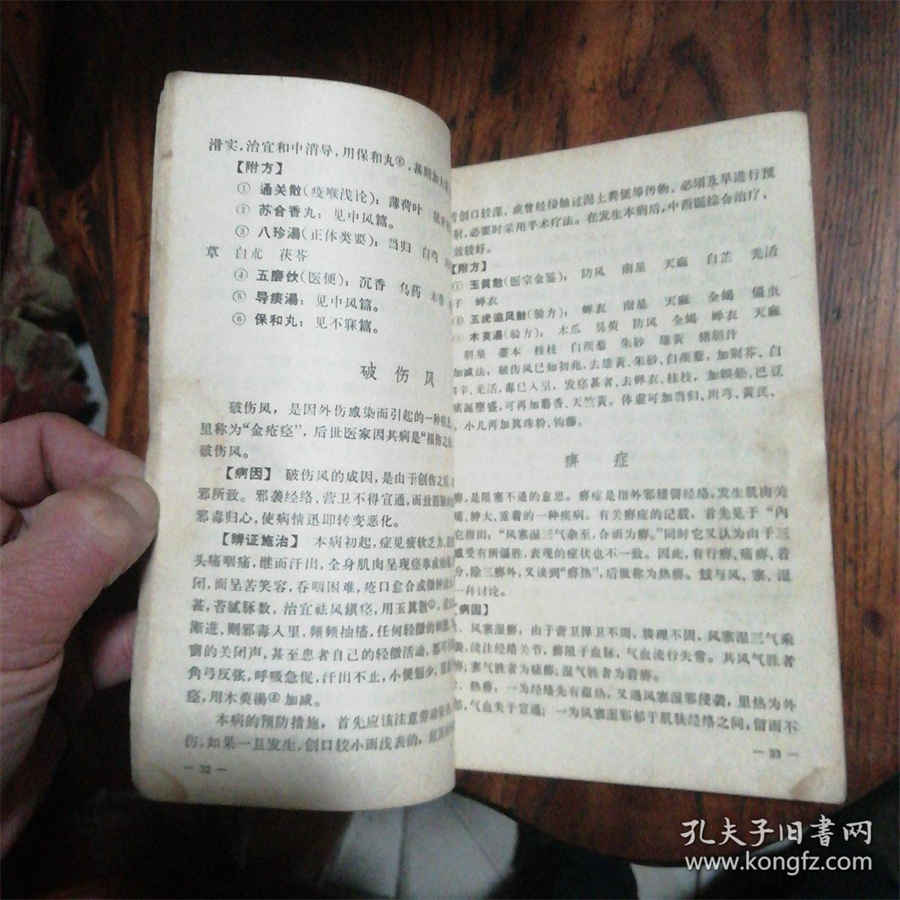 滑实，治宜和中消导，用保和丸⑥，
【附方】
① 通关散(疫喉浅论)：薄荷叶
② 苏合香丸：见中风篇。
③ 八珍湯(正体类要)：当归 白芍
草 白朮 茯苓
④ 五磨饮(医便)：沉香 乌药
⑤ 导痰湯：见中风篇。
⑥ 保和丸：见不寐篇。
破伤风
破伤风，是因外伤感染而引起的一种
里称为“金疮痉”，后世医家因其病是
破伤风。
【病因】 破伤风的成因，是由于创伤之
邪所致。邪袭经络、营卫不得宣通，而致
邪毒归心，使病情迅即转变恶化。
【辨证施治】 本病初起，症见疲软乏力
头痛咽痛，继而汗出，全身肌肉呈现痉挛
闭，面呈苦笑容，吞咽困难，疮口愈合或
甚，苔腻脉数，治宜祛风镇痉，用玉真散
渐进，则邪毒入里，频频抽搐，任何轻微的
窗的关闭声，甚至患者自己的轻微活动，
角弓反张，呼吸急促，汗出不止，小便
痉，用木萸湯 加减。
本病的预防措施，首先应该注意劳动
伤，如果一旦发生，创口较小而浅表的，
— 32 —
若创口较深，或曾经接触过泥土粪便等污物，必须及早进行预
射，必要时采用手术疗法。在发生本病后，中西医综合治疗，
效较好。
【附方】
玉真散(医宗金鉴)： 防风 南星 天麻 白芷 羌活
子 蝉衣
五虎追风散(验方)： 蝉衣 南星 天麻 全蝎 僵虫
木萸湯(验方)： 木瓜 吴萸 防风 全蝎 蝉衣 天麻
胆星 藁本 桂枝 白蒺藜 朱砂 雄黄 猪胆汁
加减法，破伤风已如初兆，去雄黄、朱砂、白蒺藜，加荆芥、白
羌活，毒已入里，发痉甚者，去蝉衣、桂枝，加蜈蚣、巴豆
痰涎壅盛，可再加麝香、天竺黄。体虚可加当归、白芍、黄芪、
小儿再加真珠粉、钩藤。
痹症
痹，是阻塞不通的意思。痹症是指外邪侵袭经络，发生肌肉关
、肿大、重着的一种疾病。有关痹症的记载，首先见于“内
它指出，“风寒湿三气杂至，合而为痹。”同时它又认为由于三
感受有所偏胜，表现的症状也不一致。因此，有行痹、痛痹、着
分，除三痹外，又谈到“痹热”，后世称为热痹。兹与风、寒、湿
一并讨论。
【病因】
风寒湿痹，由于营卫捍卫不周，腠理不固，风寒湿三气乘
袭，流注经络关节，痹阻于血脉，气血流行失常。其风气胜者
痹；寒气胜者为痛痹；湿气胜者为着痹。
热痹，一为经络先有蕴热，又遇风寒湿邪侵袭，里热为外
，气血失于宣通；一为风寒湿邪郁于肌肤经络之间，留而不
— 33 —
孔夫子旧書网
www.kongfz.com